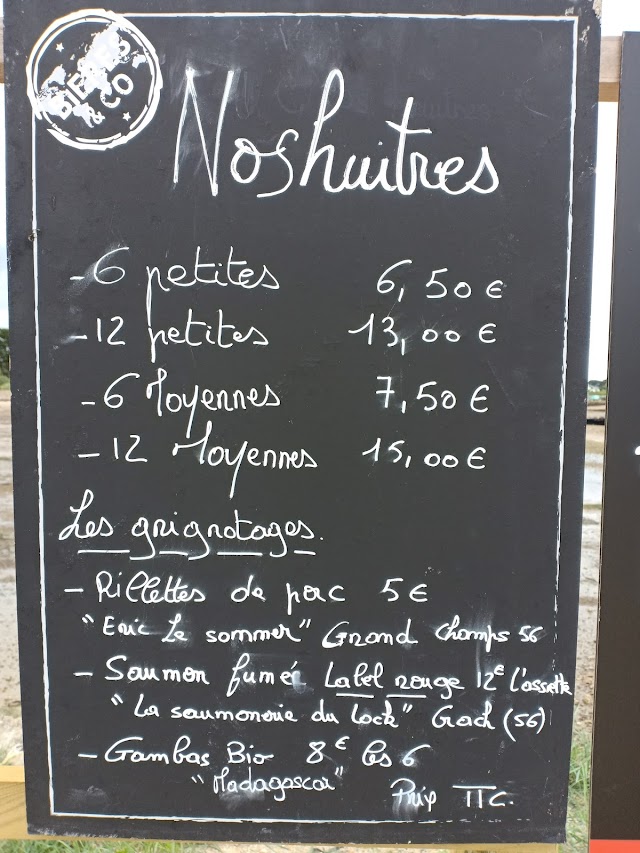 BIERES
& CO
Nos huitres
- 6 petites 6,50 €
- 12 petites 13,00 €
- 6 Moyennes 7,50 €
- 12 Moyennes 15,00 €
Les grignotages.
- Rillettes de porc 5 €
"Eric Le sommer" Grand champs 56
- Saumon fumé Label rouge 12€ l'assette
"La saumonerie du Lock" Crach (56)
- Gambas Bio 8€ les 6
"Madagascar"
Prix TTC.